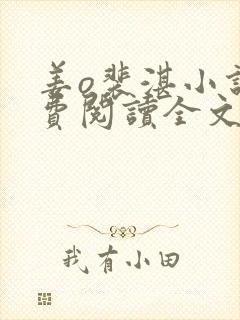 姜o裴湛小說
費閱讀全文
我有小田